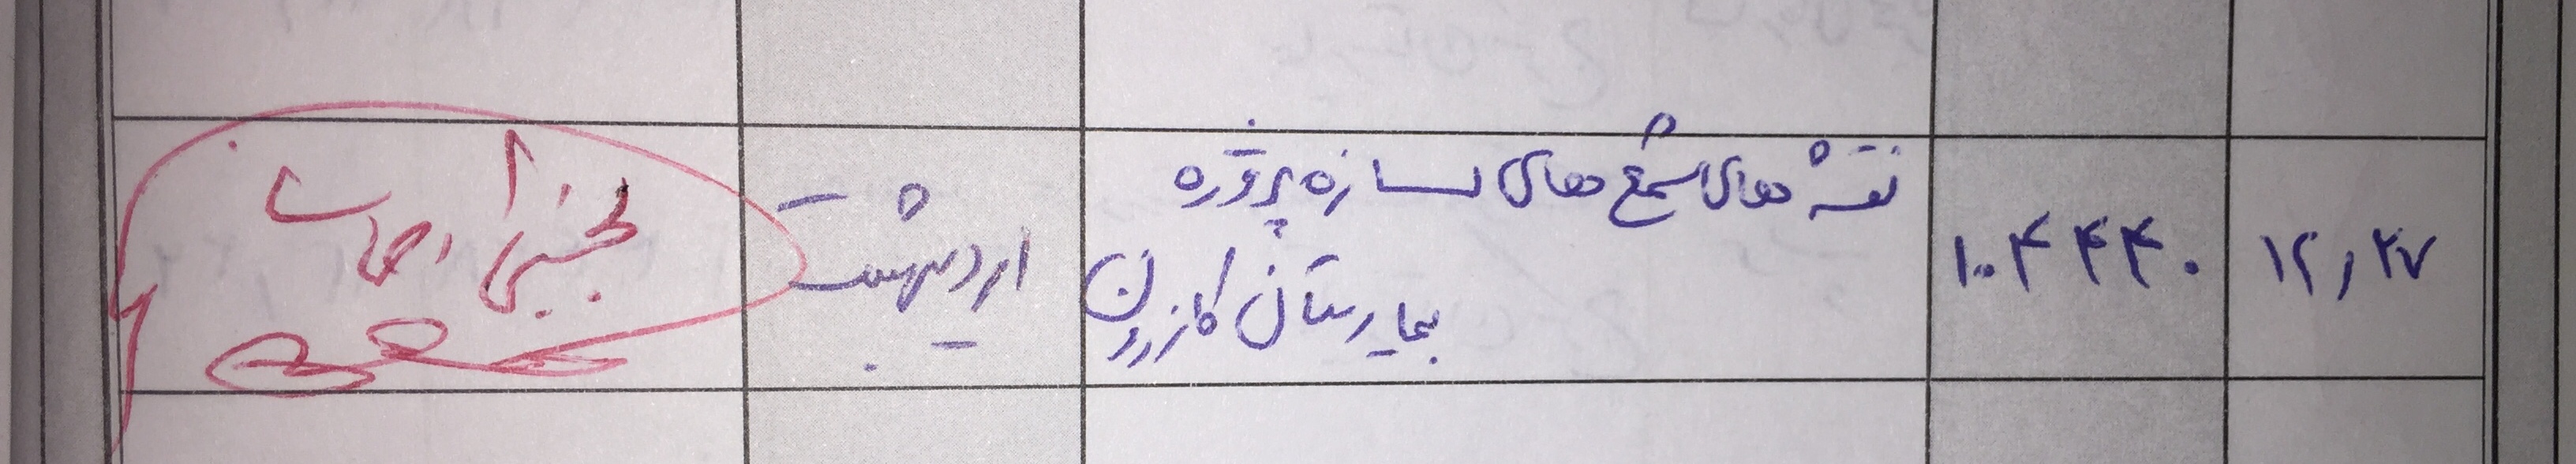 ۱۲,۲۷
۱۰۴۴۴۰
نقشه های شمع های سازه پروژه
بیمارستان کازرون
اردیبهشت